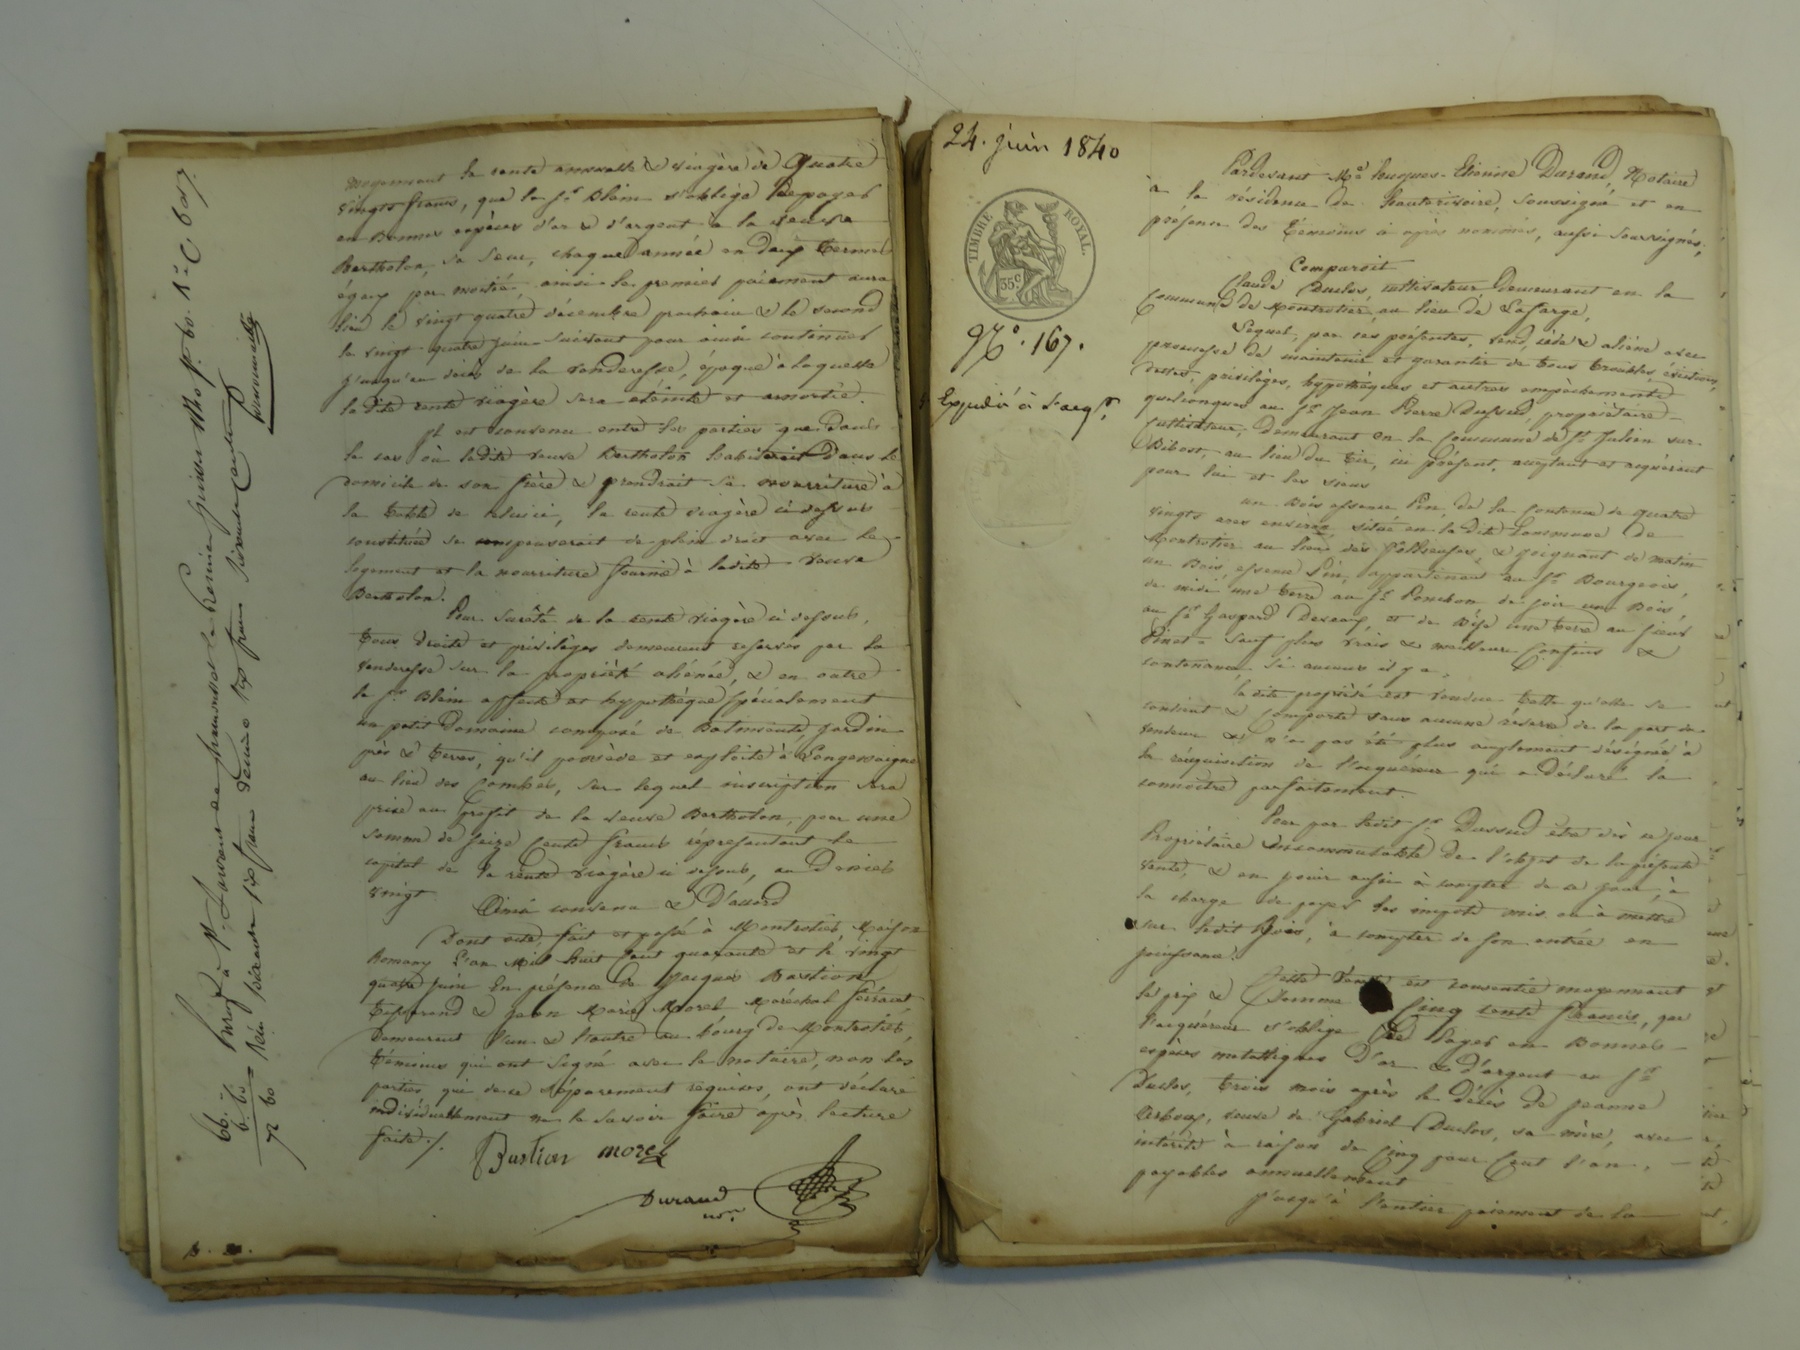 moyennant la rente annuelle & viagère de Quatre
vingts francs, que le Sr. Blein s'oblige de payer
en Bonnes espèces d'or & d'argent à la veuve
Bertholon, sa sœur, chaque année en deux termes
égaux par moitié, ainsi le premier paiement aura
lieu le vingt quatre décembre prochain & le second
le vingt quatre juin suivant pour ainsi continuer
jusqu'au décès de la venderesse, époque à laquelle
la dite rente viagère sera éteinte et amortie.
Il est convenu entre les parties que dans
le cas où ladite veuve Bertholon habiterait Dans le
domicile de son frère & prendrait sa nourriture à
la table de celui-ci, la rente viagère ci dessus
constituée se compenserait de plein droit avec le
logement et la nourriture fournie à ladite veuve
Bertholon.
Pour sureté de la rente viagère ci dessus,
tous droits et privilèges demeurent reservés par la
venderesse sur la propriété aliénée, & en outre
le Sr. Blein affecte et hypothèque spécialement
un petit Domaine composé de Batiments, jardin
prés & terres, qu'il possède et exploite à Longessaigne
au lieu des Combes, sur lequel inscription sera
prise au profit de la veuve Bertholon, pour une
somme de seize Cents francs représentant le
capital de la rente viagère ci dessus, au Denier
vingt
Ainsi convenu & D'accord
Dont acte, fait et passé à Montrotier, Maison
Romany L'an Mil huit Cent quarante et le vingt
quatre juin En présence de Jacques Bastion
tisserand & Jean Marie Morel Maréchal ferrant
Demeurant l'un & l'autre au bourg de Montrotier,
témoins qui ont signé avec le notaire, non les
parties qui de ce séparement requises, ont déclaré
individuellement ne le savoir faire après lecture
faite ./.
Bastion morel
Durand
nore.
66. "
6. 60
72 60
24. juin 1840
TIMBRE ROYAL.
35c
No. 167.
Expédié à l'acqr.
Pardevant Me. hugues-Etienne Durand, Notaire
à la résidence de hauterivoire, soussigné et en
présence des témoins ci après nommés, aussi soussignés,
Comparoit
Claude Duclos, cultivateur Demeurant en la
Commune de Montrotier, au lieu de Lafarge,
Lequel, par ces présentes, vend, cède & aliène avec
promesse de maintenir et garantir de tous troubles, évictions,
dettes, privilèges, hypothèques et autres empêchements
quelconques au Sr. Jean Pierre Dussud, propriétaire
cultivateur, demeurant en la Commune de St Julien sur
Bibost au lieu du , ici présent, acceptant et acquérant
pour lui et les siens
un Bois essence Pin, de la contenue de quatre
vingts ares environ, situé en la dite Commune de
Montrotier au lieu des & joignant de matin
un Bois essence Pin, appartenant au Sr. Bourgeois,
de midi une terre au Sr. Ponchon de soir un Bois,
au Sr Gaspard , et de Bise une terre au sieur
Pinet - Sauf plus vrais & meilleurs Confins &
contenance si aucuns il y a.
La dite propriété est vendue telle qu'elle se
contient & comporte sans aucune réserve de la part du
vendeur & n'a pas été plus amplement désignée à
la réquisition de l'acquéreur qui a déclaré la
connoître parfaitement.
Pour par ledit Sr. Dussud être dès ce jour
Propriétaire incommutable de l'objet de la présente
vente, & en jouir aussi à compter de ce jour, à
la charge de payer les impots mis ou à mettre
sur ledit Bois, à compter de son entrée en
jouissance.
Cette vente est consentie moyennant
le prix & Somme Cinq cents francs, que
l'acquéreur s'oblige de Payer en Bonnes
espèces metalliques D'or & d'argent au Sr.
Duclos, trois mois après le décès de Jeanne
, veuve de Gabriel Duclos, sa mère, avec
intérêts à raison de Cinq pour Cent l'an,
payables annuellement
jusqu'à l'entier paiement de la